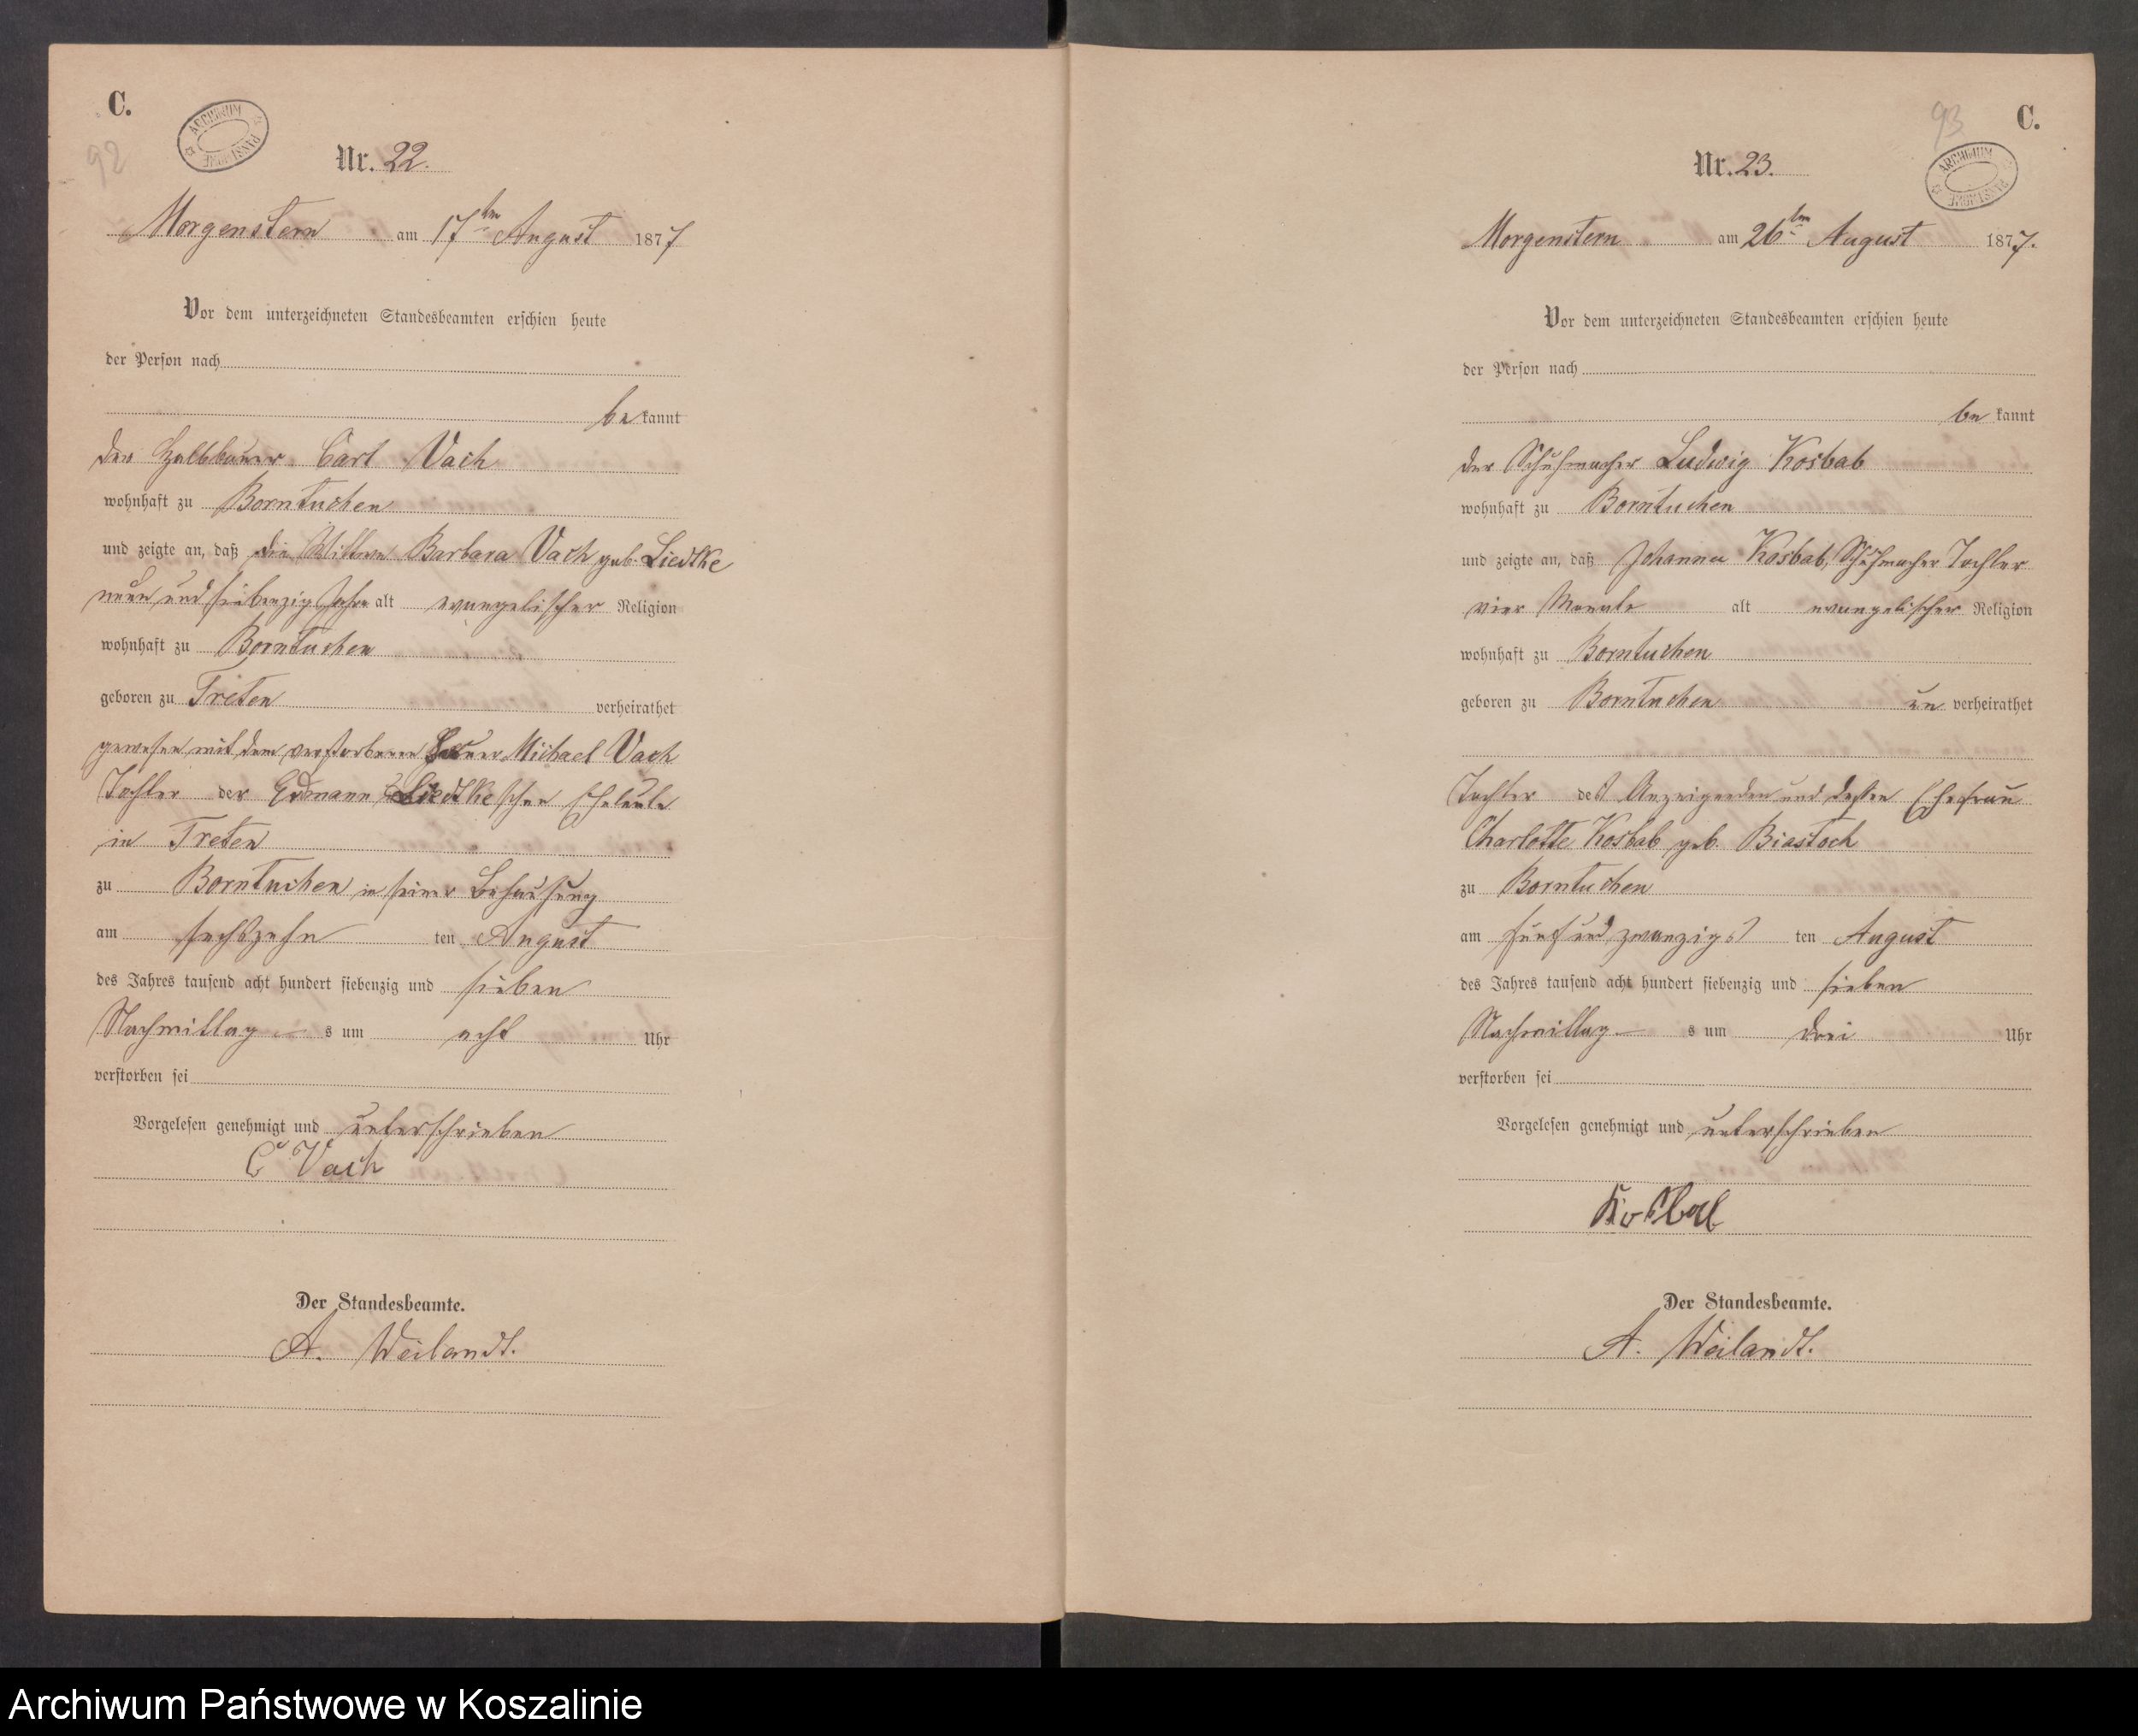 C.
92
ARCHIWUM PAŃSTWOWE
Nr. 22.
Morgenstern am 17ten August 1877
Vor dem unterzeichneten Standesbeamten erschien heute
der Person nach
bekannt
der Halbbauer Carl Vach
wohnhaft zu Borntuchen
und zeigte an, daß die Wittwe Barbara Vach geb. Liedtke
neun und siebenzig Jahre alt evangelischer Religion
wohnhaft zu Borntuchen
geboren zu Treten verheirathet
gewesen mit dem verstorbenen Bauer Michael Vach
Tochter der Erdmann Liedtkeschen Eheleute
in Treten
zu Borntuchen in seiner Behausung
am sechszehn ten August
des Jahres tausend acht hundert siebenzig und sieben
Nachmittag s um acht Uhr
verstorben sei
Vorgelesen genehmigt und unterschrieben
C Vach
Der Standesbeamte.
A. Weilandt.
93
C.
ARCHIWUM PAŃSTWOWE
Nr. 23.
Morgenstern am 26ten August 1877.
Vor dem unterzeichneten Standesbeamten erschien heute
der Person nach
bekannt
der Schuhmacher Ludwig Kosbab
wohnhaft zu Borntuchen
und zeigte an, daß Johanna Kosbab, Schuhmacher Tochter
vier Monate alt evangelischer Religion
wohnhaft zu Borntuchen
geboren zu Borntuchen un verheirathet
Tochter des Anzeigenden und dessen Ehefrau
Charlotte Kosbab geb. Biastoch
zu Borntuchen
am fünf und zwanzigs ten August
des Jahres tausend acht hundert siebenzig und sieben
Nachmittag s um drei Uhr
verstorben sei
Vorgelesen genehmigt und unterschrieben
Kosbab
Der Standesbeamte.
A. Weilandt.
Archiwum Państwowe w Koszalinie